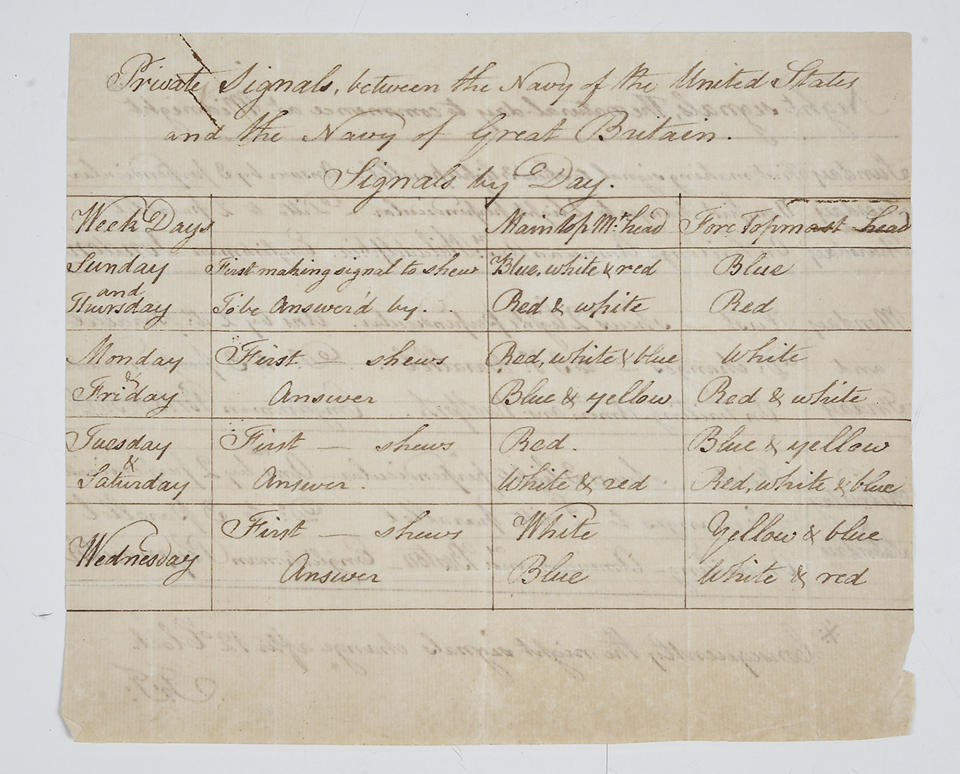 Private Signals, between the Navy of the United States
and the Navy of Great Britain.
Signals by Day.
Week Days Maintop Mt. head Fore Topmast head
Sunday First making signal to shew Blue, white & red Blue
and
Thursday To be Answer'd by . . Red & white Red
Monday First — shews Red, white & blue White
&
Friday Answer Blue & yellow Red & white
Tuesday First — shews Red. Blue & yellow
&
Saturday Answer. White & red Red, white & blue
First — shews White Yellow & blue
Wednesday
Answer Blue White & red